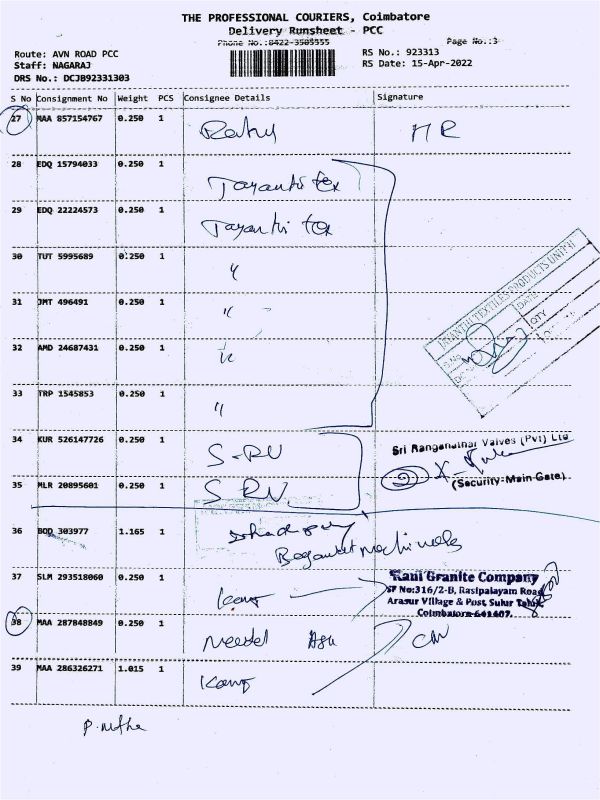 THE PROFESSIONAL COURIERS, Coimbatore
Delivery Runsheet - PCC
Phone No.:0422-3505555
Page No.:3
Route: AVN ROAD PCC
RS No.: 923313
Staff: NAGARAJ
RS Date: 15-Apr-2022
DRS No.: DCJB92331303
S No Consignment No Weight PCS Consignee Details Signature
27 MAA 857154767 0.250 1
28 EDQ 15794033 0.250 1 Jayanthi tex
29 EDQ 22224573 0.250 1 Jayanthi tex
30 TUT 5995689 0.250 1 "
31 JMT 496491 0.250 1 "
32 AMD 24687431 0.250 1 "
33 TRP 1545853 0.250 1 "
34 KUR 526147726 0.250 1 S-RV
Sri Ranganathar Valves (Pvt) Ltd
35 MLR 20895601 0.250 1 S RV
(Security-Main Gate)
36 BOD 303977 1.165 1
37 SLM 293518060 0.250 1
Rani Granite Company
SF No:316/2-B, Rasipalayam Road
Arasur Village & Post, Sulur Taluk,
Coimbatore-641407.
38 MAA 287848849 0.250 1
39 MAA 286326271 1.015 1